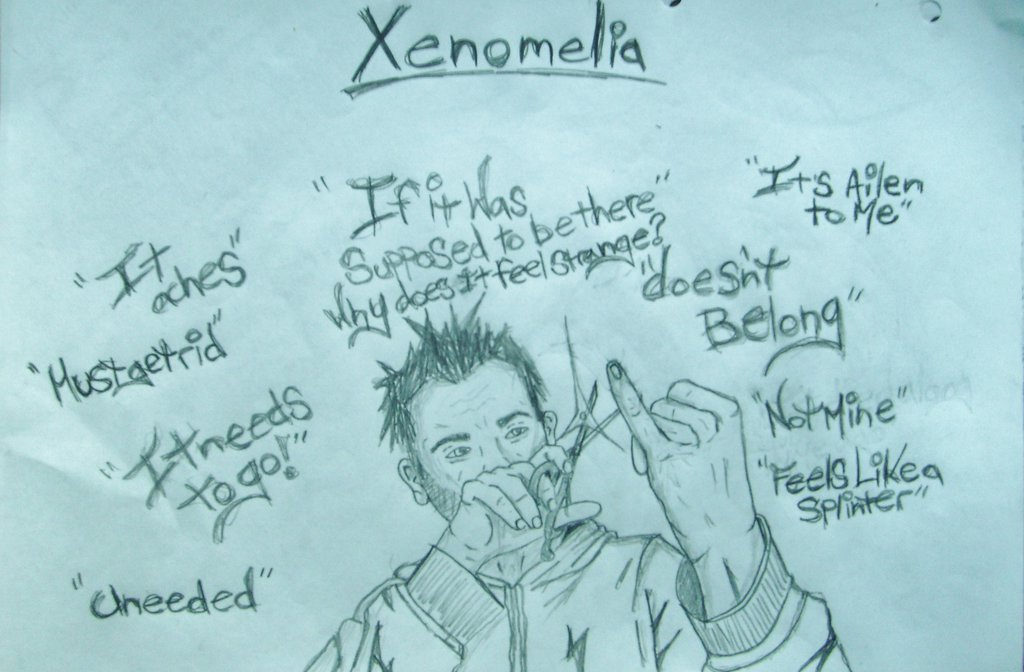 Xenomelia
"If it Was
Supposed to be there"
Why does it feel Strange?
"It's Ailen
to Me"
"It
aches"
"doesn't
Belong"
"Must get rid"
"It needs
to go!"
"Not Mine"
"Feels Like a
Splinter"
"Uneeded"